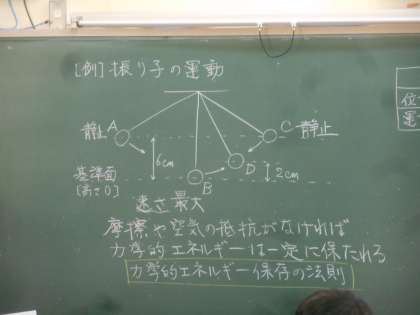 [例]振り子の運動
静止A
C静止
6cm
D
2cm
基準面
[高さ0]
B
速さ最大
摩擦や空気の抵抗がなければ
力学的エネルギーは一定に保たれる
力学的エネルギー保存の法則
位
運